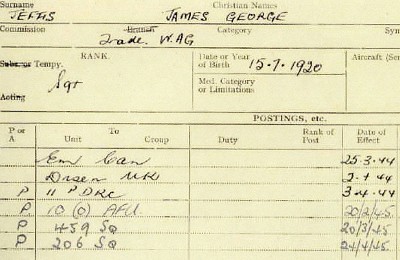 Surname Christian Names
JEFFS JAMES GEORGE
Commission Branch Category Syn
Trade. W.AG
RANK. Date or Year of Birth 15.7.1920 Aircraft (Ser
Subs. or Tempy. Sgt Med. Category or Limitations
Acting
POSTINGS, etc.
P or A To Unit Group Duty Rank of Post Date of Effect
Em Can 25.3.44
Disem UK 2.4.44
P 11 PDRC 3.4.44
P 10 (O) AFU. 20/2/45.
P 459 SQ 20/3/45
P 206 SQ 24/4/45.